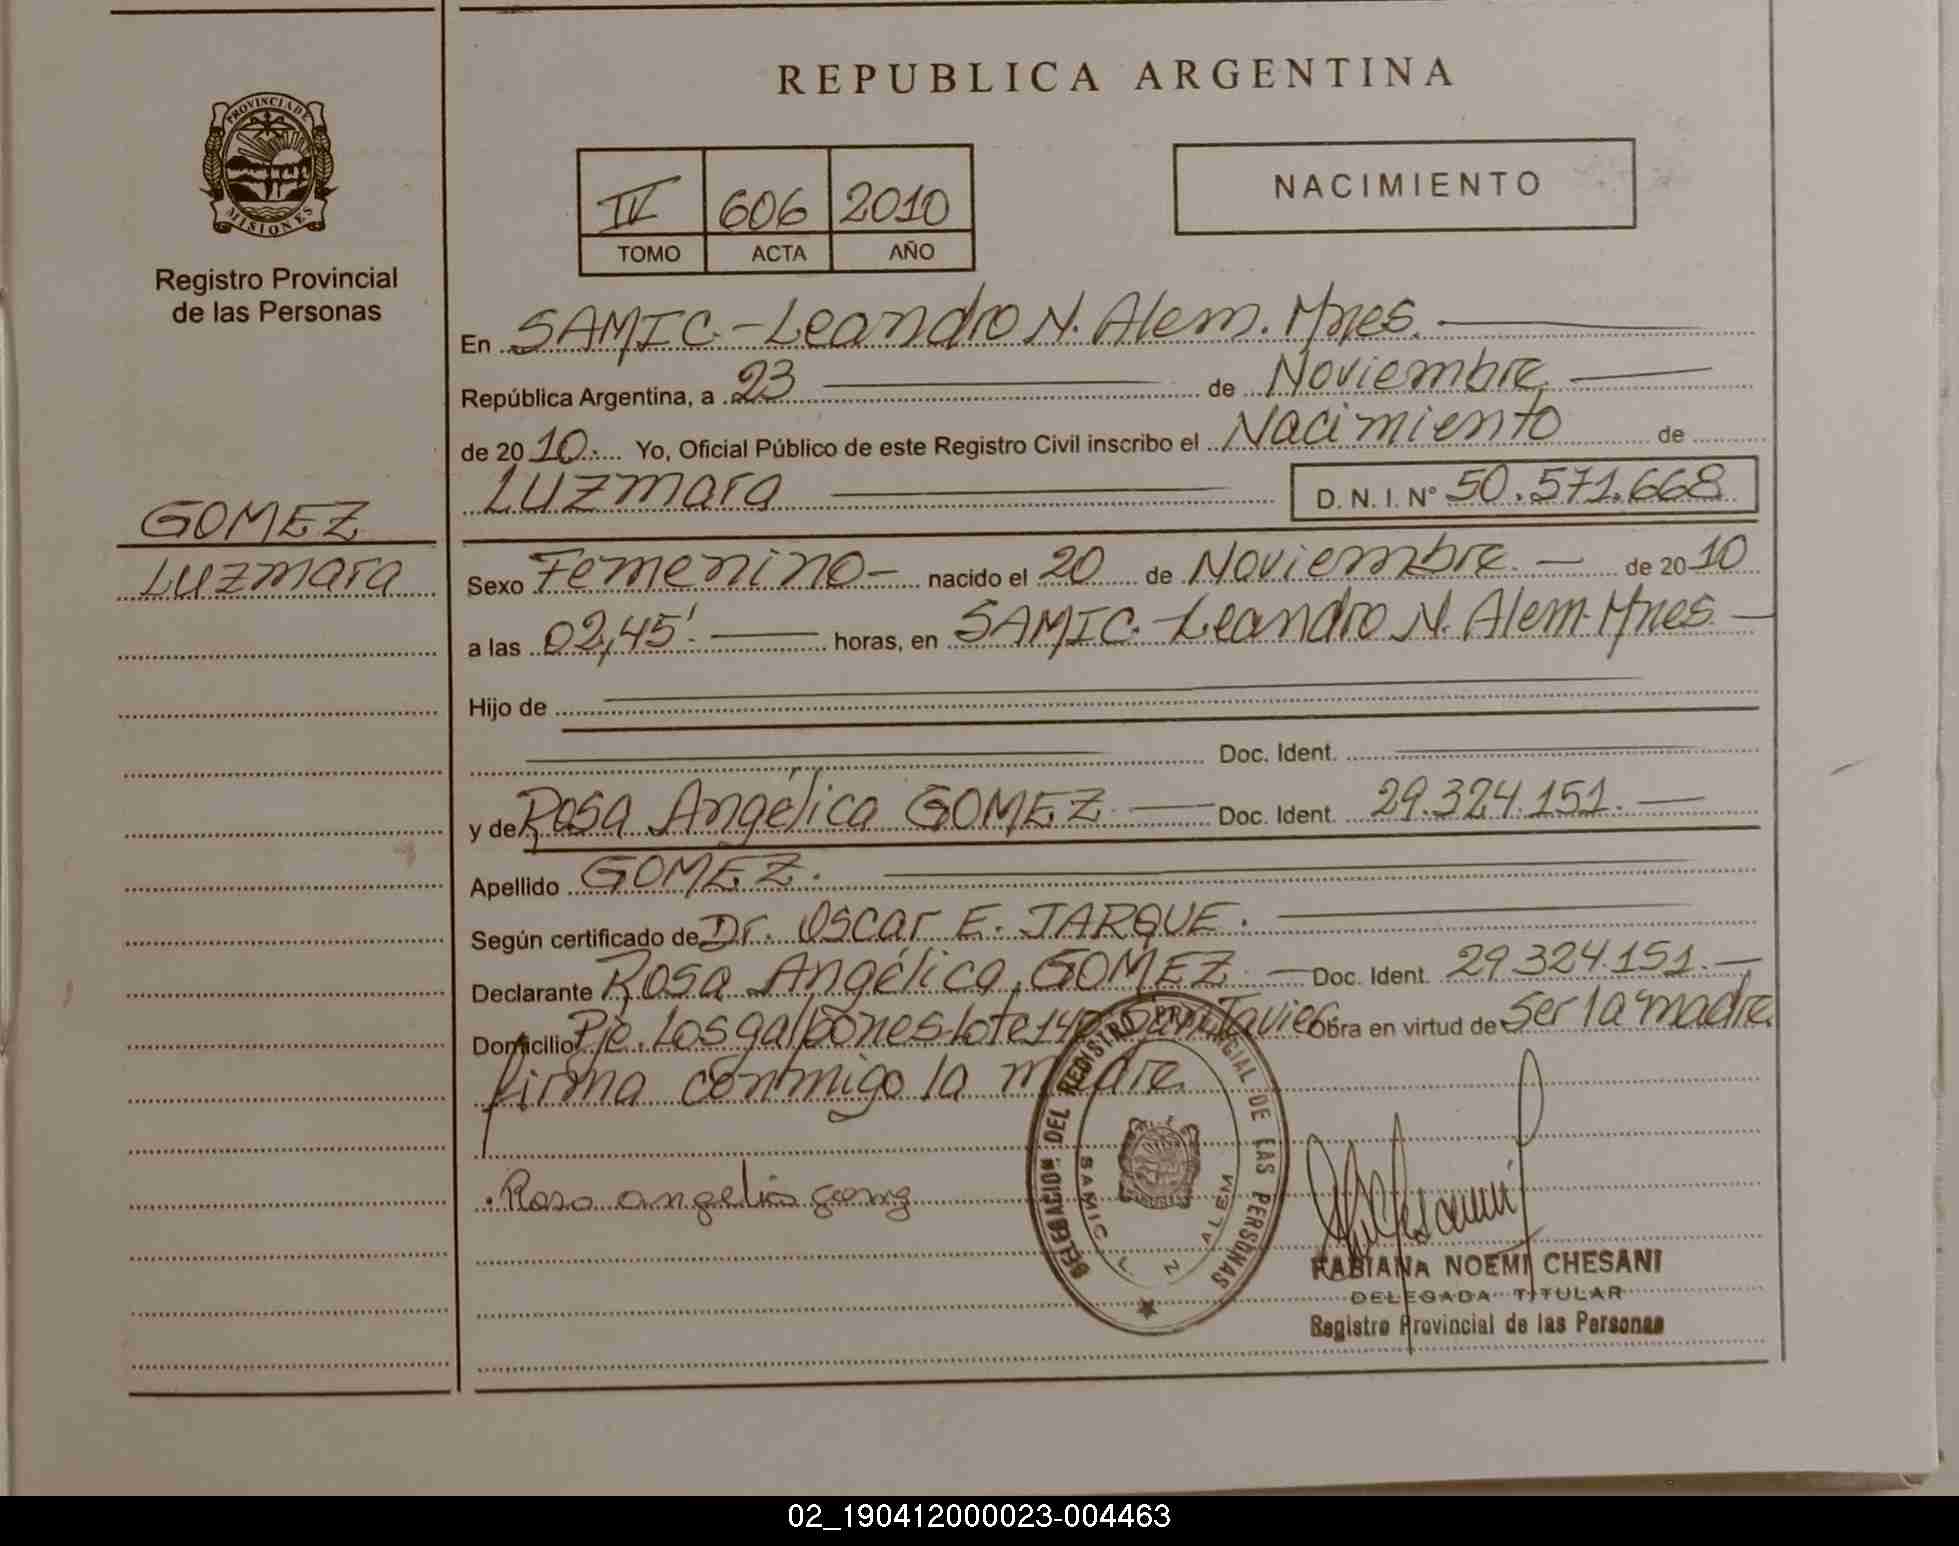 REPUBLICA ARGENTINA
PROVINCIA DE
MISIONES
Registro Provincial
de las Personas
IV 606 2010
TOMO ACTA AÑO
NACIMIENTO
En SAMIC.-Leandro N. Alem. Mnes.
República Argentina, a 23 de Noviembre
de 2010. Yo, Oficial Público de este Registro Civil inscribo el Nacimiento de
Luzmara D. N. I. N° 50.571.668
GOMEZ
Luzmara
Sexo Femenino- nacido el 20 de Noviembre. de 2010
a las 02,45'. horas, en SAMIC.-Leandro N. Alem-Mnes
Hijo de
Doc. Ident.
y de Rosa Angélica GOMEZ Doc. Ident. 29.324.151.
Apellido GOMEZ.
Según certificado de Dr. Oscar E. JARQUE.
Declarante Rosa Angélica GOMEZ Doc. Ident. 29.324.151.
Domicilio Pje. Los galpones-Lote 140 San Javier Obra en virtud de ser la madre
firma conmigo la madre
DELEGACION DEL REGISTRO PROVINCIAL DE LAS PERSONAS
SAMIC L. N. ALEM
FABIANA NOEMI CHESANI
DELEGADA TITULAR
Registro Provincial de las Personas
02_190412000023-004463